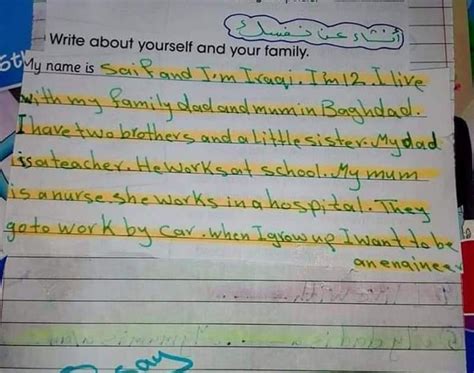 أنشاء عن نفسك
Write about yourself and your family.
My name is Saif and I'm Iraqi. I'm 12. I live
with my family dad and mum in Baghdad.
I have two brothers and a little sister. My dad
is a teacher. He works at school. My mum
is a nurse. she works in a hospital. They
go to work by car. when I grow up I want to be
an engineer